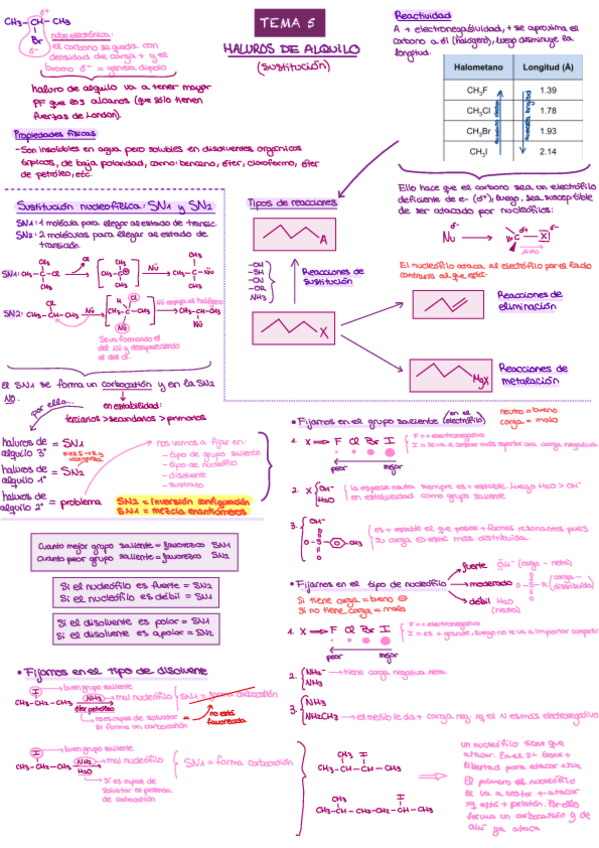 TEMA 5
HALUROS DE ALQUILO
(sustitución)
CH3-CH-CH3
δ+
Br
δ-
nube electrónica:
el carbono se queda con
densidad de carga + y el
bromo δ- = genera dipolo
haluro de alquilo va a tener mayor
PF que los alcanos (que sólo tienen
fuerzas de London).
Propiedades físicas
-Son insolubles en agua pero solubles en disolventes orgánicos
típicos, de baja polaridad, como: benceno, éter, cloroformo, éter
de petróleo, etc.
Reactividad
A + electronegatividad, + se aproxima el
carbono a él (halógeno), luego disminuye la
longitud.
Halometano Longitud (Å)
CH3F 1.39
CH3Cl 1.78
CH3Br 1.93
CH3I 2.14
Ello hace que el carbono sea un electrófilo
deficiente de e- (δ+), luego, sea susceptible
de ser atacado por nucleófilos:
Nu δ- → C δ+ -X δ-
El nucleófilo ataca al electrófilo por el lado
contrario al que está:
Sustitución nucleofílica: SN1 y SN2
SN1: 1 molécula para llegar al estado de transic.
SN2: 2 moléculas para llegar al estado de
transición
SN1:
SN2:
Nü empuja al halógeno
Se va formando el
del Nü y desapareciendo
el del Cl.
el SN1 se forma un carbocatión y en la SN2
NO.
por ello...
en estabilidad:
terciarios > secundarios > primarios
haluros de
alquilo 3º = SN1
haluros de
alquilo 1º = SN2
haluros de
alquilo 2º = problema
nos vamos a fijar en:
-tipo de grupo saliente
-tipo de nucleófilo
-disolvente
-sustrato
SN2 = inversión configuración
SN1 = mezcla enantiómeros
Tipos de reacciones
A
-OH
-SH
-CN
-OR
NH3
Reacciones de
sustitución
X
Reacciones de
eliminación
MgX
Reacciones de
metalación
Cuanto mejor grupo saliente = favorezco SN1
Cuanto peor grupo saliente = favorezco SN2
Si el nucleófilo es fuerte = SN2
Si el nucleófilo es débil = SN1
Si el disolvente es polar = SN1
Si el disolvente es apolar = SN2
• Fijarnos en el grupo saliente (en el electrófilo)
neutro = bueno
carga = malo
1. X ⟹ F Cl Br I
F = + electronegativo
I = le va a costar más soportar una carga negativa
peor mejor
2. X OH- H2O
la especie neutra siempre es + estable. luego H2O > OH-
en estabilidad como grupo saliente
3. OH-
O-S-O-CH3
es + estable el que posee + formas resonantes pues
su carga ⊖ está más distribuida.
• Fijarnos en el tipo de nucleófilo
Si tiene carga = bueno ☺
Si no tiene carga = malo
fuerte OH- (carga - neta)
moderado (carga - distribuida)
débil H2O (neutro)
1. X ⟹ F Cl Br I
F = + electronegativo
I = es + grande, luego no le va a importar compartir
peor mejor
2. NH2- → tiene carga negativa neta
NH3
3. NH3
NH2CH3
• Fijarnos en el tipo de disolvente
I → buen grupo saliente
CH3-CH2-CH3
NH3 → mal nucleófilo
éter petróleo
no es capaz de solvatar
si forma un carbocatión
SN1 = forma carbocatión
no está
favorecida
I → buen grupo saliente
CH3-CH2-CH3
NH3 → mal nucleófilo
H2O
Si es capaz de
solvatar en presencia
de carbocatión
SN1 = forma carbocatión
CH3 I
CH3-CH-CH-CH3
CH3 I
CH3-CH-CH2-CH2-CH-CH3
un nucleófilo tiene que
atacar. En el 2º tiene +
libertad para atacar = SN2
El primero el nucleófilo
le va a costar + atacar
xq está + pelotón. Por ello
forma un carbocatión y de
ahí ya ataca